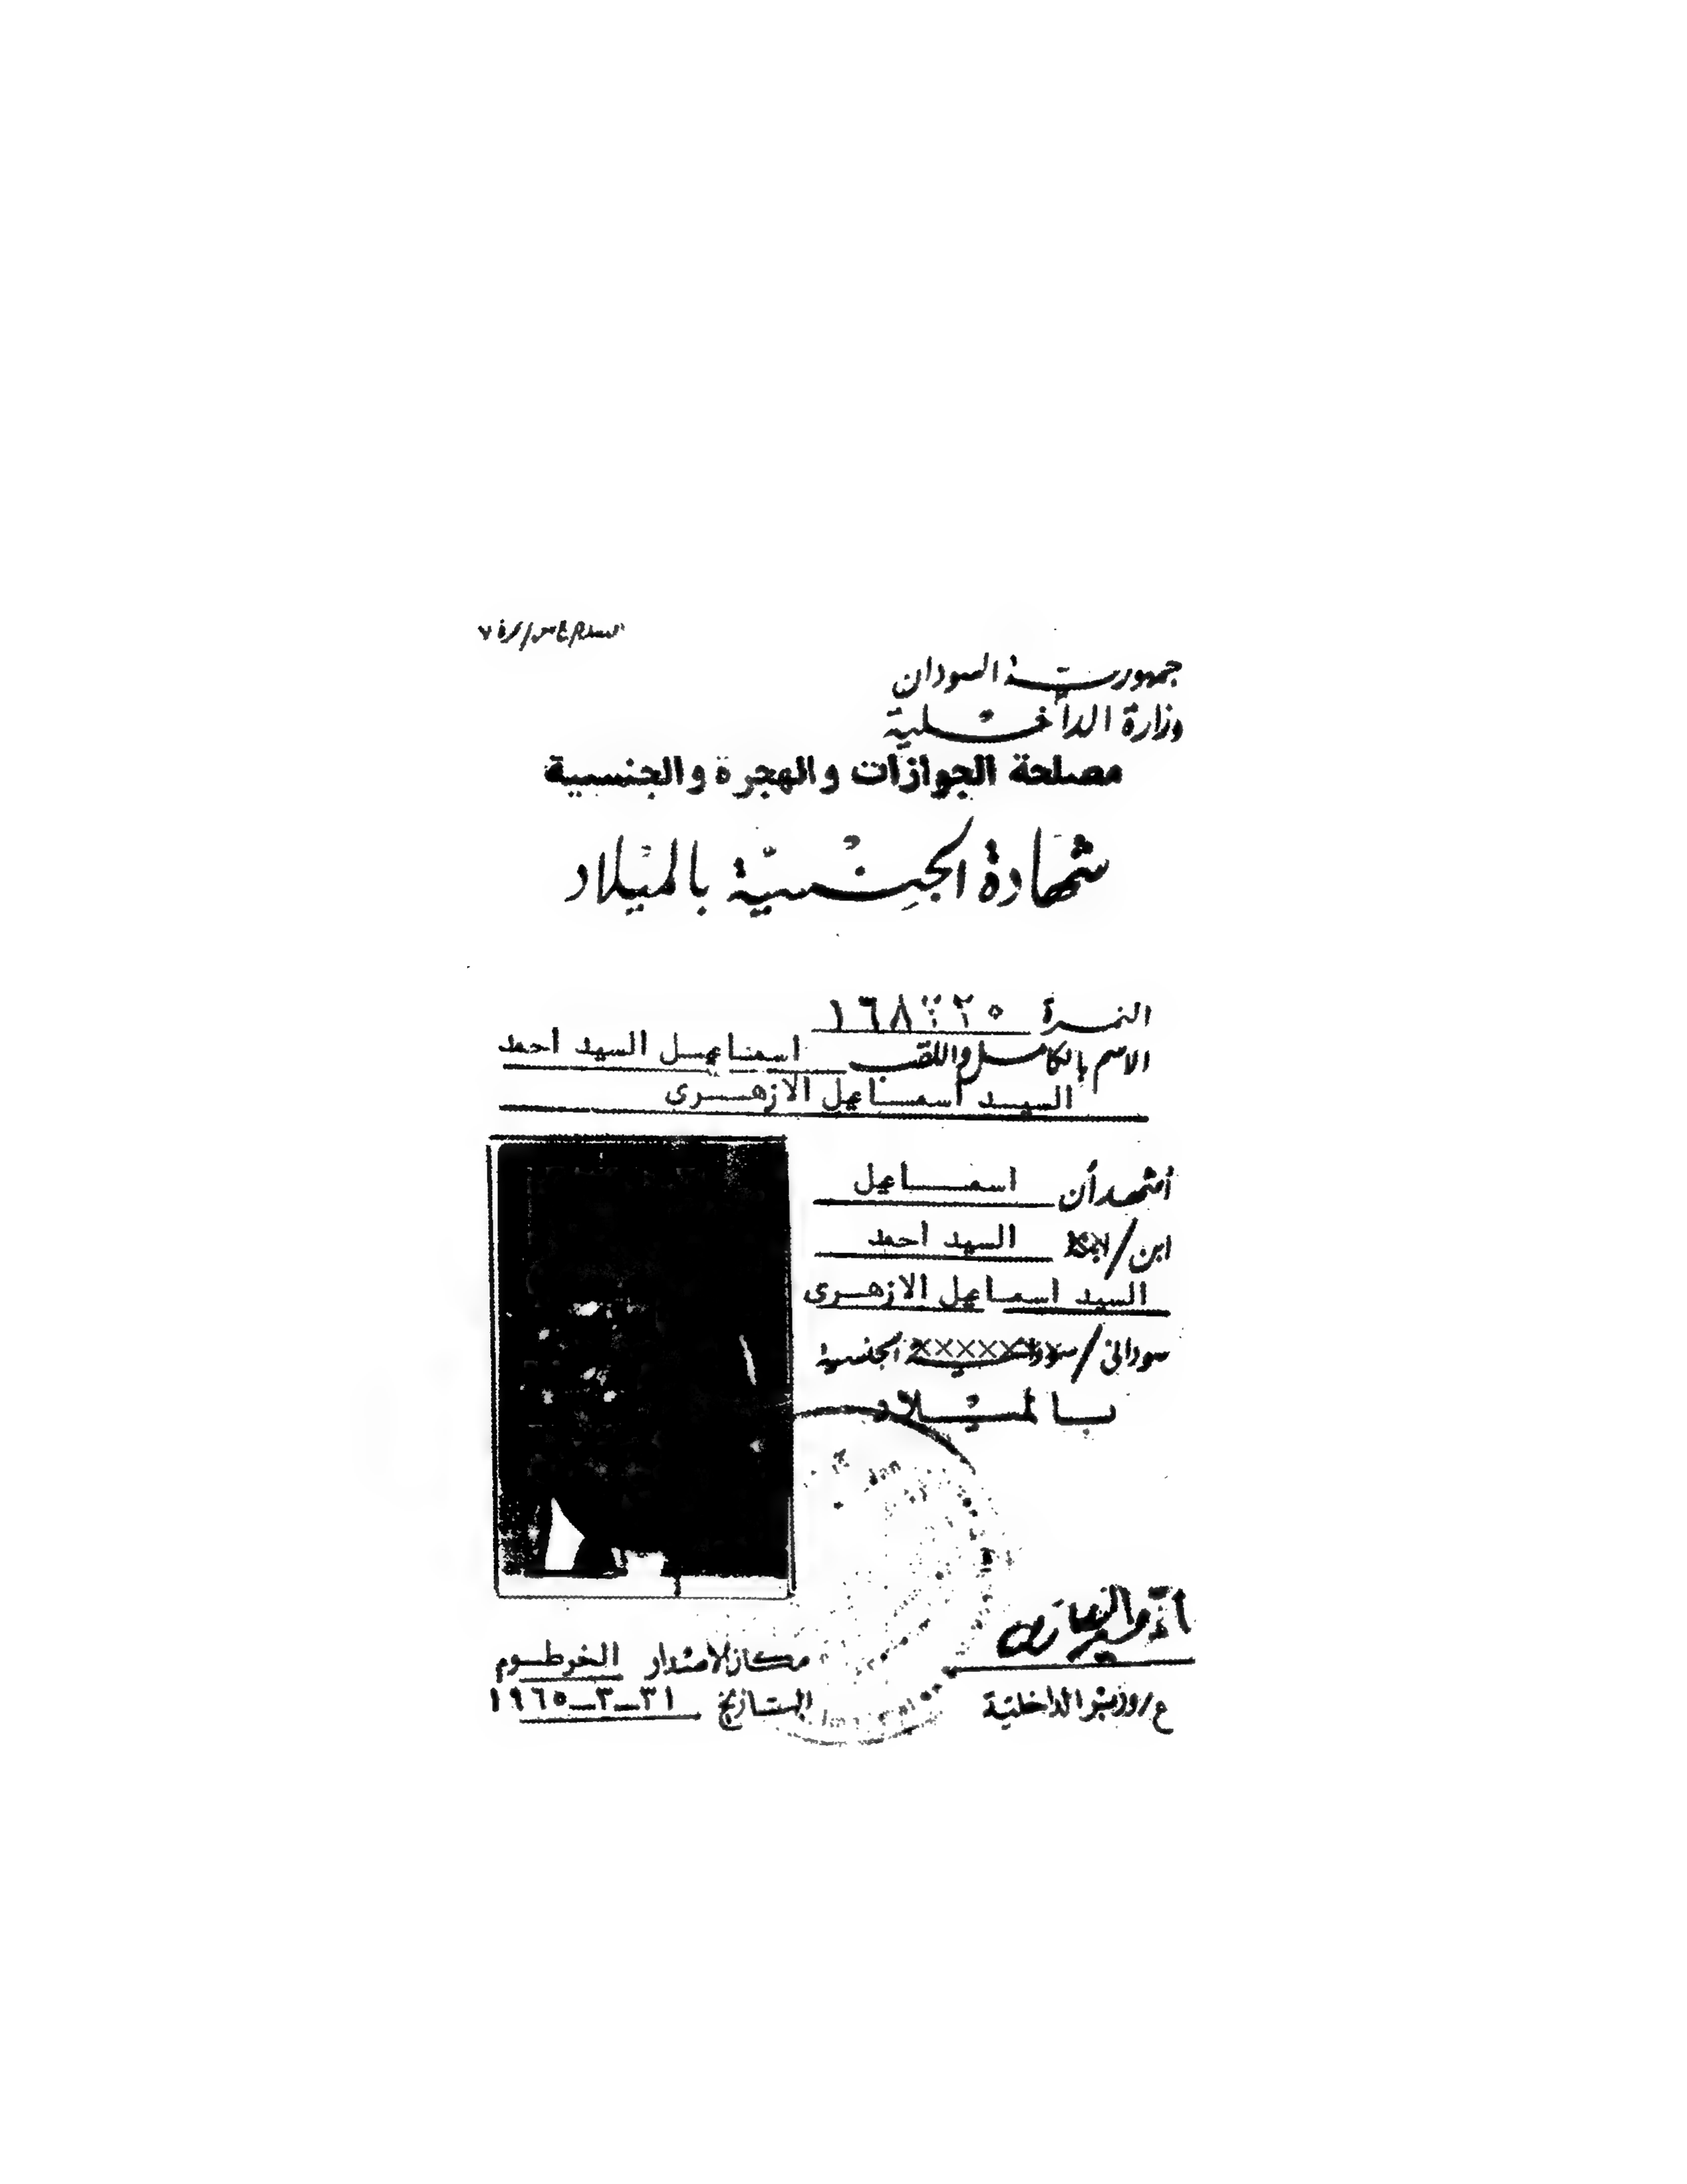 جمهورية السودان
وزارة الداخلية
مصلحة الجوازات والهجرة والجنسية
شهادة الجنسية بالميلاد
النمرة
الاسم بالكامل واللقب اسماعيل السيد احمد
السيد اسماعيل الازهرى
أشهد أن اسماعيل
ابن / ابنة السيد احمد
السيد اسماعيل الازهرى
سوداني / سودانية الجنسية
بالميلاد
ع/وزير الداخلية
مكان الاصدار الخرطوم
التاريخ ٣١-٣-١٩٦٥